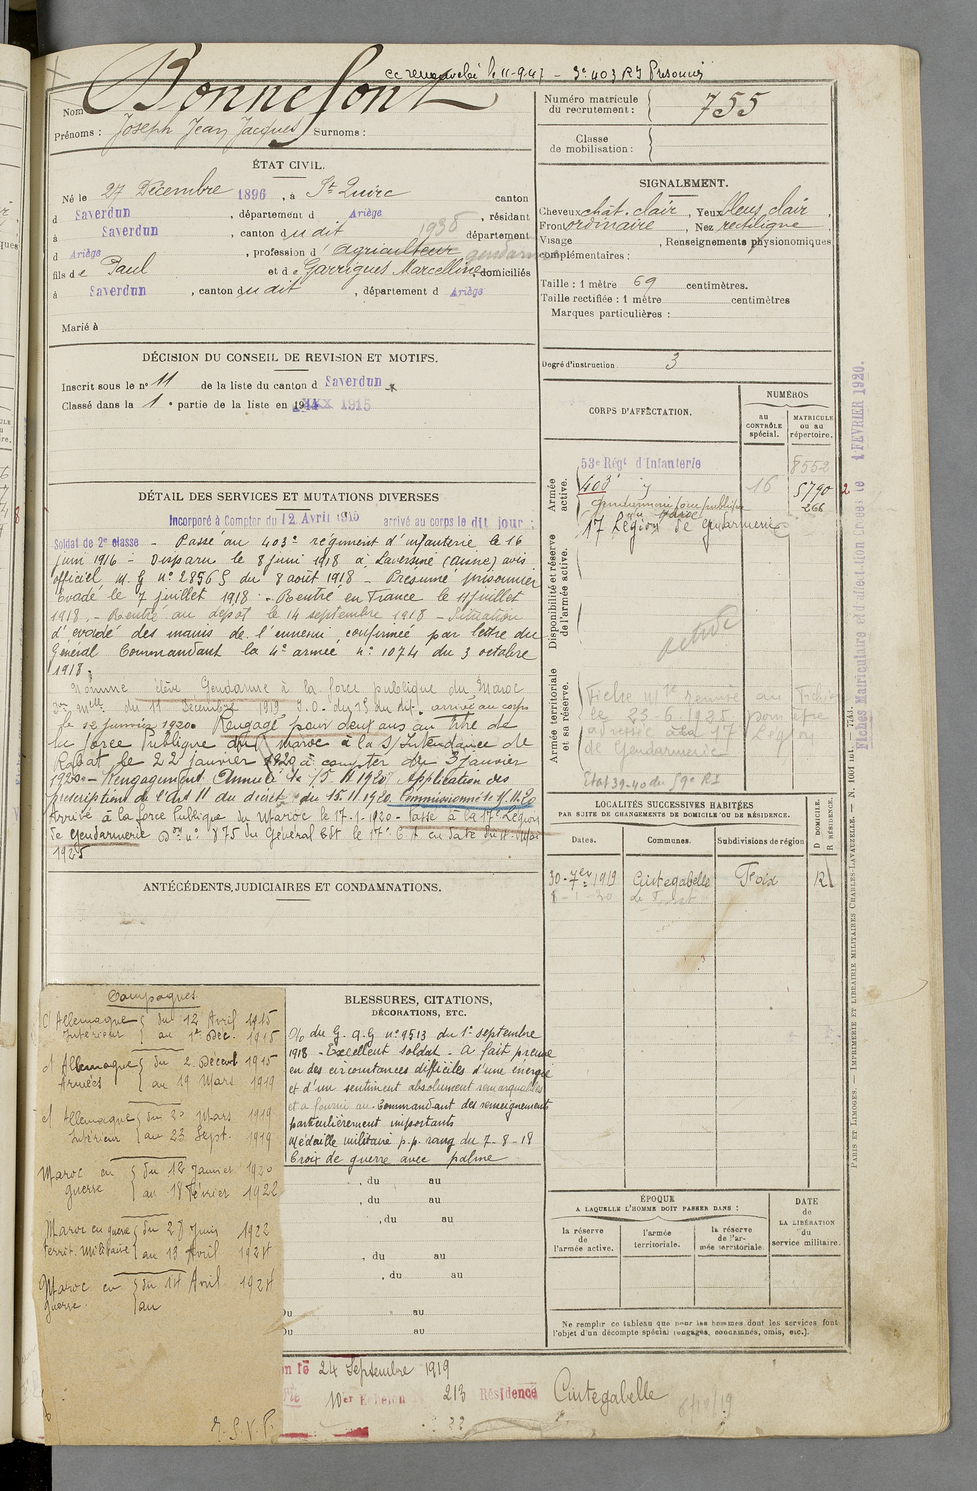 cc renouvelé le 11-9-47 - 3e 403 RI Prisonnier
Nom Bonnefont
Prénoms : Joseph Jean Jacques Surnoms :
Numéro matricule du recrutement : 755
Classe de mobilisation :
ÉTAT CIVIL.
Né le 27 Décembre 1896, à St Quirc canton
d Saverdun, département d Ariège, résidant
à Saverdun, canton du dit 1938 département
d Ariège, profession d'agriculteur gendarme
fils de Paul et de Garrigues Marcelline domiciliés
à Saverdun, canton du dit, département d Ariège
Marié à
SIGNALEMENT.
Cheveux chat. clair, Yeux bleus clair,
Front ordinaire, Nez rectiligne,
Visage , Renseignements physionomiques
complémentaires :
Taille : 1 mètre 69 centimètres.
Taille rectifiée : 1 mètre centimètres
Marques particulières :
Degré d'instruction 3
DÉCISION DU CONSEIL DE REVISION ET MOTIFS.
Inscrit sous le no 11 de la liste du canton d Saverdun
Classé dans la 1e partie de la liste en 1915
DÉTAIL DES SERVICES ET MUTATIONS DIVERSES
Incorporé à Compter du 12 Avril 1915 arrivé au corps le dit jour :
Soldat de 2e classe - Passé au 403e régiment d'infanterie le 16
juin 1916 - Disparu le 8 juin 1918 à Laversine (Aisne) avis
officiel M. G no 28565 du 8 août 1918 - Présumé prisonnier
Évadé le 7 juillet 1918 - Rentré en France le 11 juillet
1918. - Rentré au dépôt le 14 septembre 1918 - Situation
d'évadé des mains de l'ennemi confirmée par lettre du
Général Commandant la 4e armée no 1074 du 3 octobre
1918.
Nommé élève Gendarme à la force publique du Maroc
du 11 Décembre 1919 J.O. du 15 du dit arrivé au corps
le 12 janvier 1920. Rengagé pour deux ans au titre de
la force Publique du Maroc à la S/Intendance de
Rabat le 22 janvier 1920 à compter du 3 janvier
1920 - Rengagement Annulé le 15.11.1920 Application des
prescriptions de l'art 11 du décret du 15.11.1920. Commissionné le 15.11.20
Arrivé à la force Publique du Maroc le 17.1.1920 - Passé à la 17e Légion
de Gendarmerie on no 875 du Général Cdt le 17e C.A en date du
1925
CORPS D'AFFECTATION.
NUMÉROS
au CONTRÔLE spécial.
MATRICULE ou au répertoire.
Armée active.
53e Régt d'Infanterie 8552
403e 16 5790 2
Gendarmerie force publique du Maroc 266
17 Légion de gendarmerie
Disponibilité et réserve de l'armée active.
Armée territoriale et sa réserve.
Fiche Mle renvoie au Fichier
le 23-6-1925, pour être
adressée à la 17e Légion
de Gendarmerie
État 39-40 du 59e RI
Fiches Matriculaire et d'affectation Créée le 1 FÉVRIER 1920.
LOCALITÉS SUCCESSIVES HABITÉES
PAR SUITE DE CHANGEMENTS DE DOMICILE OU DE RÉSIDENCE.
Dates. Communes. Subdivisions de région D DOMICILE. R RÉSIDENCE.
30-7er 1919 Cintegabelle Foix R
8-1-20
ANTÉCÉDENTS JUDICIAIRES ET CONDAMNATIONS.
Campagnes
C/ Allemagne Intérieur du 12 Avril 1915 au 1er Déc. 1915
c/ Allemagne Armées du 2 Décemb 1915 au 19 Mars 1919
c/ Allemagne Intérieur du 20 Mars 1919 au 23 Sept. 1919
Maroc en guerre du 12 Janvier 1920 au 18 Février 1922
Maroc en guerre territ. militaire du 28 Juin 1922 au 13 Avril 1924
Maroc en guerre du 14 Avril 1924 au
T.S.V.P.
BLESSURES, CITATIONS,
DÉCORATIONS, ETC.
O/o du G.Q.G no 9513 du 1er septembre
1918 - Excellent soldat - A fait preuve
en des circonstances difficiles d'une énergie
et d'un sentiment absolument remarquables
et a fourni au Commandant des renseignements
particulièrement importants
Médaille militaire p.p. rang du 7-8-18
Croix de guerre avec palme
, du au
, du au
, du au
, du au
, du au
Du au
Du au
ÉPOQUE
A LAQUELLE L'HOMME DOIT PASSER DANS :
la réserve de l'armée active.
l'armée territoriale.
la réserve de l'armée territoriale.
DATE DE LA LIBÉRATION du service militaire.
Ne remplir ce tableau que pour les hommes dont les services font
l'objet d'un décompte spécial (engagés, condamnés, omis, etc.).
24 Septembre 1919
10er Échelon 213 Résidence Cintegabelle
PARIS ET LIMOGES. — IMPRIMERIE ET LIBRAIRIE MILITAIRES CHARLES-LAVAUZELLE. — N. 1001 bis